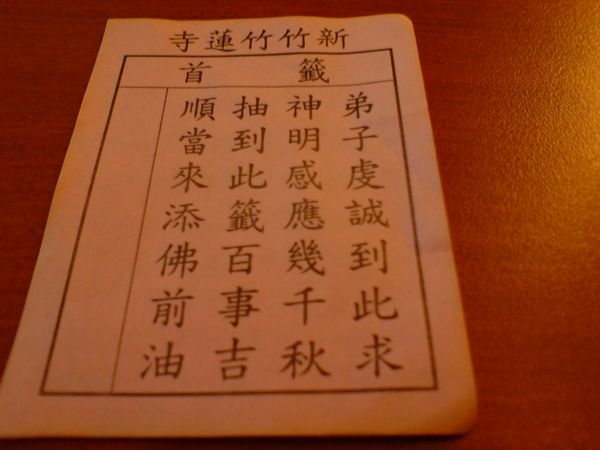 新竹竹蓮寺
籤首
弟子虔誠到此求
神明感應幾千秋
抽到此籤百事吉
順當來添佛前油